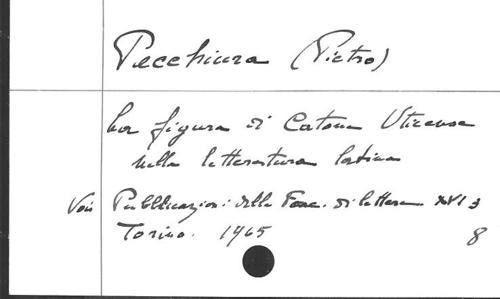 Pecchiura (Pietro)
La figura di Catone Uticense
nella letteratura latina
Voir Pubblicazioni della Fac. di lettere XVI 3
Torino. 1965 8